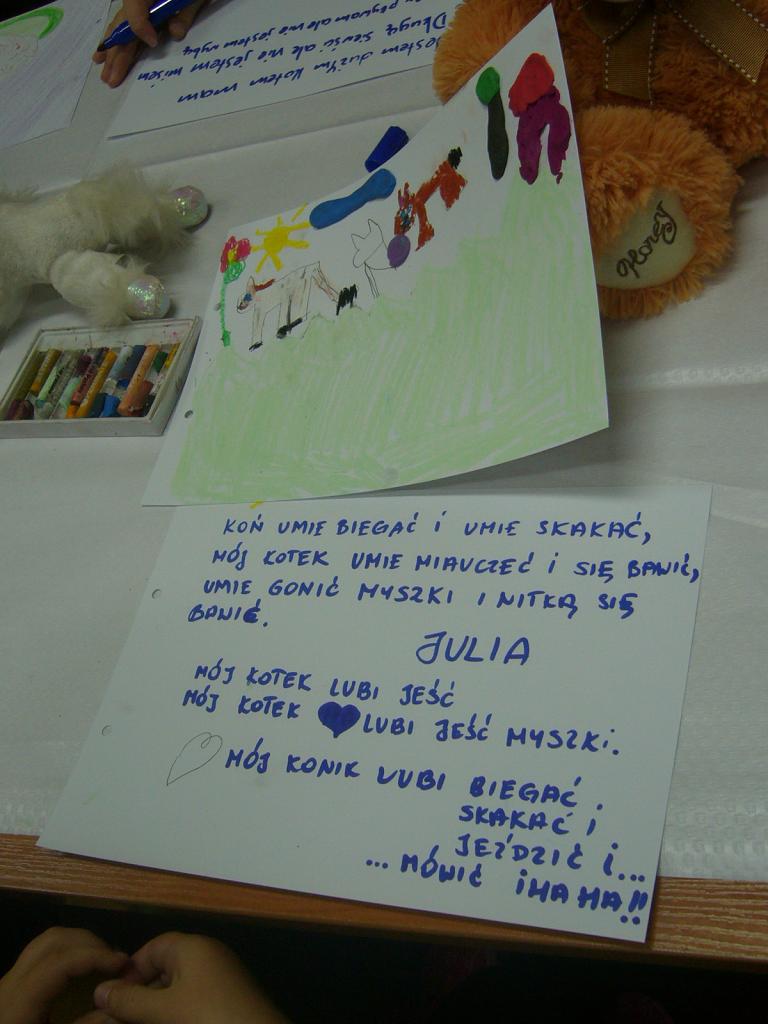 Jestem dużym kotem mam
Długą sierść ale nie jestem misiem
pływam ale nie jestem rybą
Honey
KOŃ UMIE BIEGAĆ i UMIE SKAKAĆ,
MÓJ KOTEK UMIE MIAUCZEĆ i SIĘ BAWIĆ,
UMIE GONIĆ MYSZKI I NITKĄ SIĘ
BAWIĆ.
JULIA
MÓJ KOTEK LUBI JEŚĆ
MÓJ KOTEK LUBI JEŚĆ MYSZKi.
MÓJ KONIK LUBI BIEGAĆ.
SKAKAĆ i
JEŹDZIĆ i...
... MÓWIĆ iHAHA!!